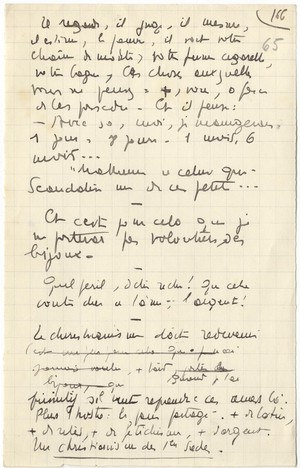 166
65
Il regarde, il juge, il mesure,
il estime, le pauvre, il voit votre
chaîne de montre, votre fume cigarette,
votre bague, les choses auxquelles
vous ne pensez + vous,
de les posséder. Et il pense:
– Avec ça, moi, je mangerais
1 jour, 7 jours. 1 mois, 6
mois...
"Malheur à celui qui
scandalise un de ces petits"...
–
Et c'est pour cela que je
ne porterai pas volontiers des
bijoux.
–
Quel péril, d'être riche! Que cela
coûte cher à l'âme, l'argent!
–
Le christianisme doit redevenir
primitif s'il veut reprendre ces âmes là.
Plus d'hostie: le pain partagé. + de latin,
+ de rites, + de fétichisme, + d'argent.
Un christianisme des 1ers siècles.